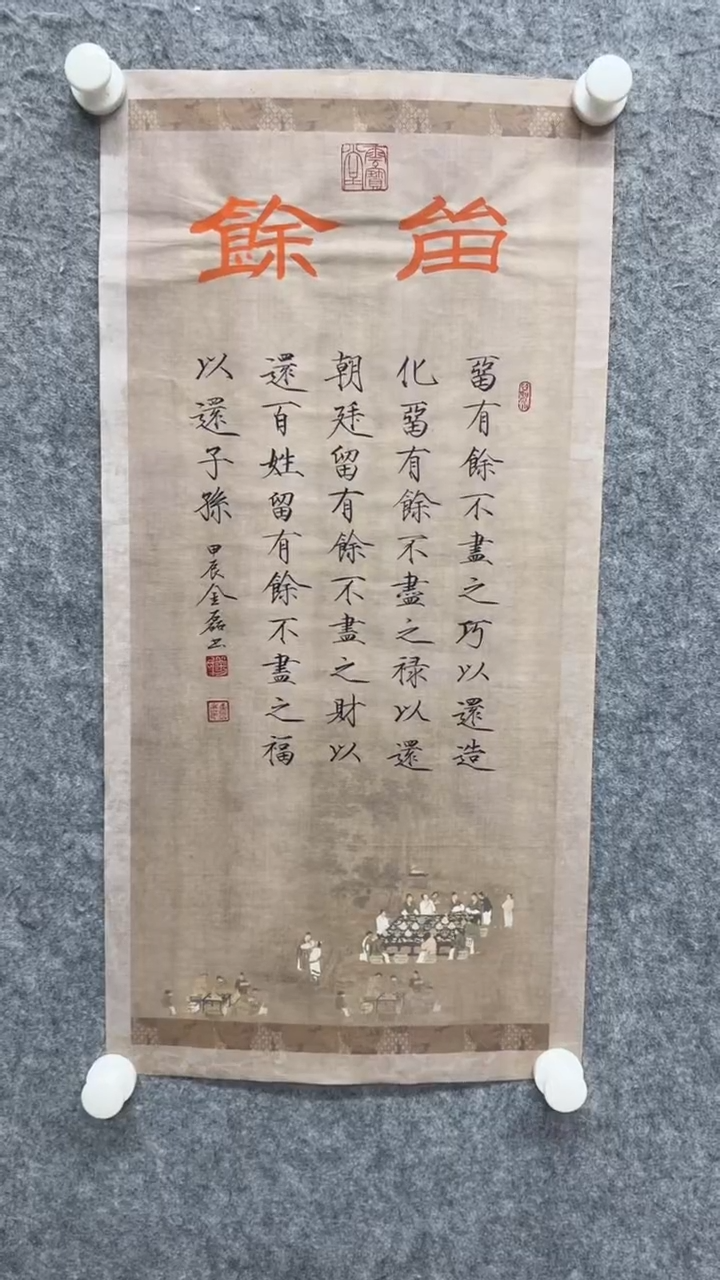 留餘
雲寶堂
畱有餘不盡之巧以還造
化畱有餘不盡之禄以還
朝廷留有餘不盡之財以
還百姓留有餘不盡之福
以還子孫 甲辰金磊书